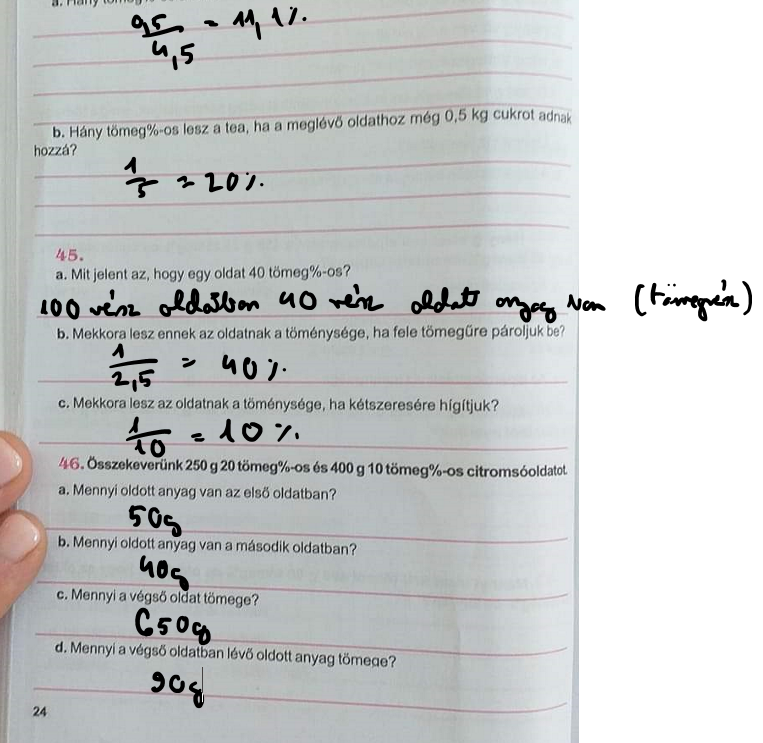 0,5/4,5 = 11,1%
b. Hány tömeg%-os lesz a tea, ha a meglévő oldathoz még 0,5 kg cukrot adnak
hozzá?
1/5 = 20%.
45.
a. Mit jelent az, hogy egy oldat 40 tömeg%-os?
100 rész oldatban 40 rész oldott anyag van (tömegrész)
b. Mekkora lesz ennek az oldatnak a töménysége, ha fele tömegűre pároljuk be?
1/2,5 = 40%.
c. Mekkora lesz az oldatnak a töménysége, ha kétszeresére hígítjuk?
1/10 = 10%.
46. Összekeverünk 250 g 20 tömeg%-os és 400 g 10 tömeg%-os citromsóoldatot.
a. Mennyi oldott anyag van az első oldatban?
50g
b. Mennyi oldott anyag van a második oldatban?
40g
c. Mennyi a végső oldat tömege?
650g
d. Mennyi a végső oldatban lévő oldott anyag tömege?
90g
24